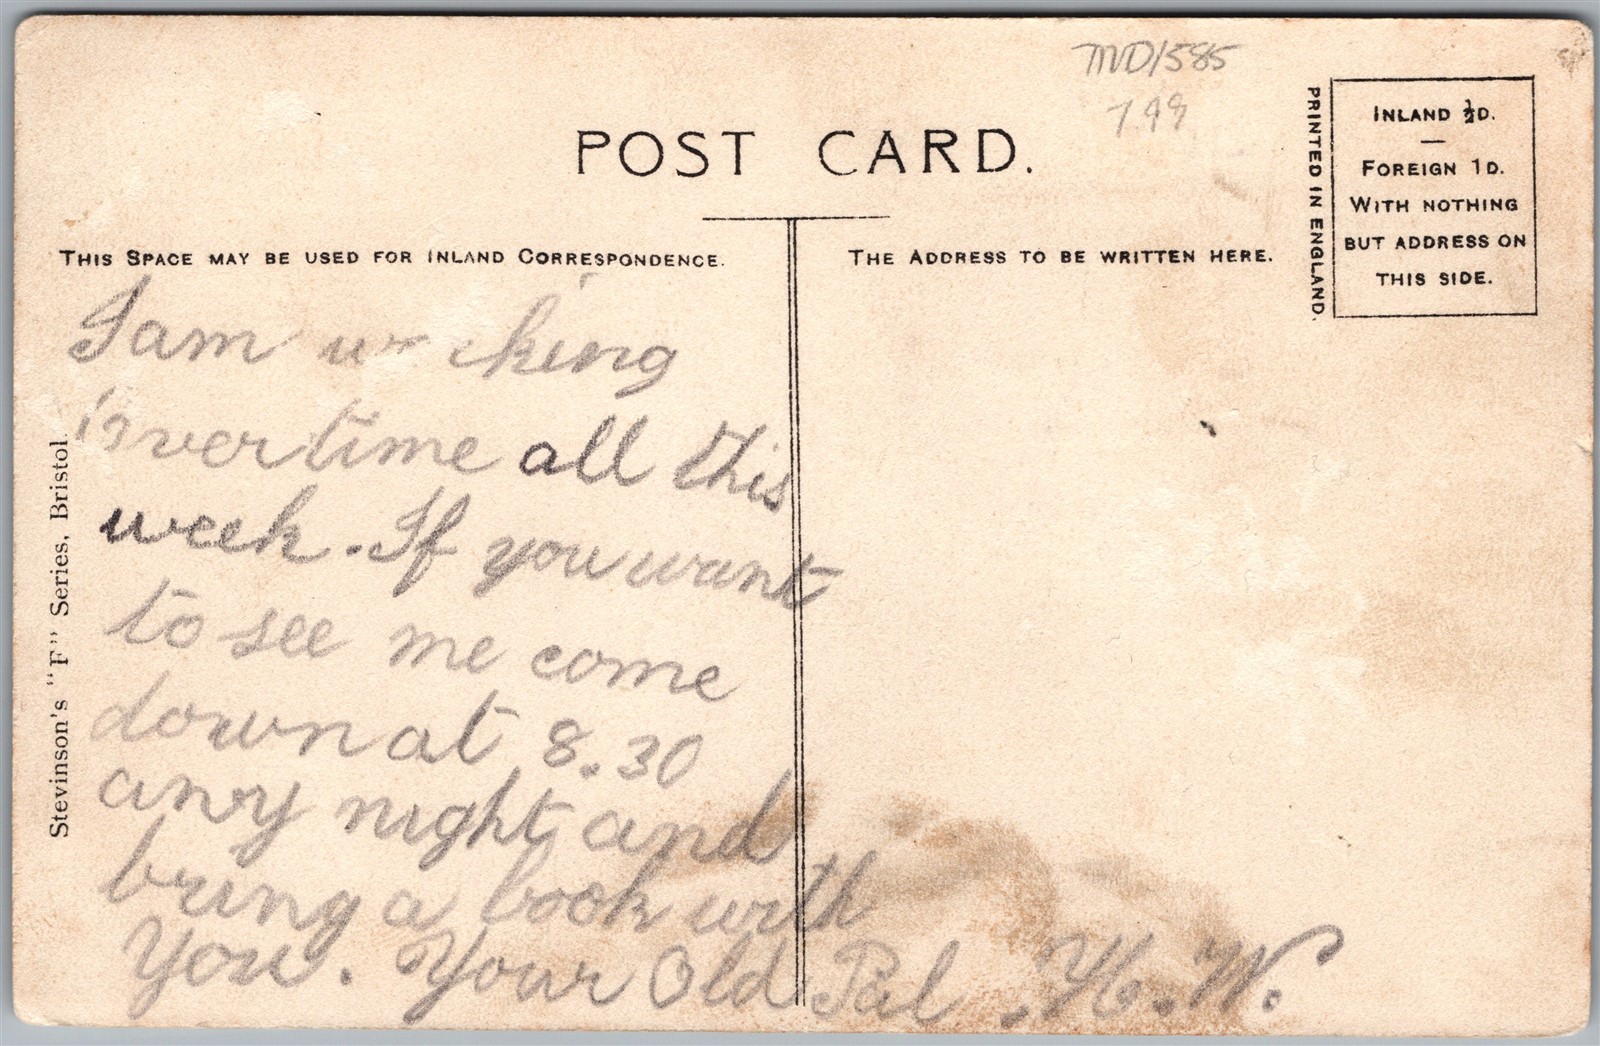 MD1585
7.99
POST CARD.
INLAND ½D.
FOREIGN 1D.
WITH NOTHING
BUT ADDRESS ON
THIS SIDE.
PRINTED IN ENGLAND.
THIS SPACE MAY BE USED FOR INLAND CORRESPONDENCE.
THE ADDRESS TO BE WRITTEN HERE.
Stevinson's "F" Series, Bristol.
I am w king
overtime all this
week. If you want
to see me come
down at 8.30
any night and
bring a book with
You. Your Old Pal. H. W.